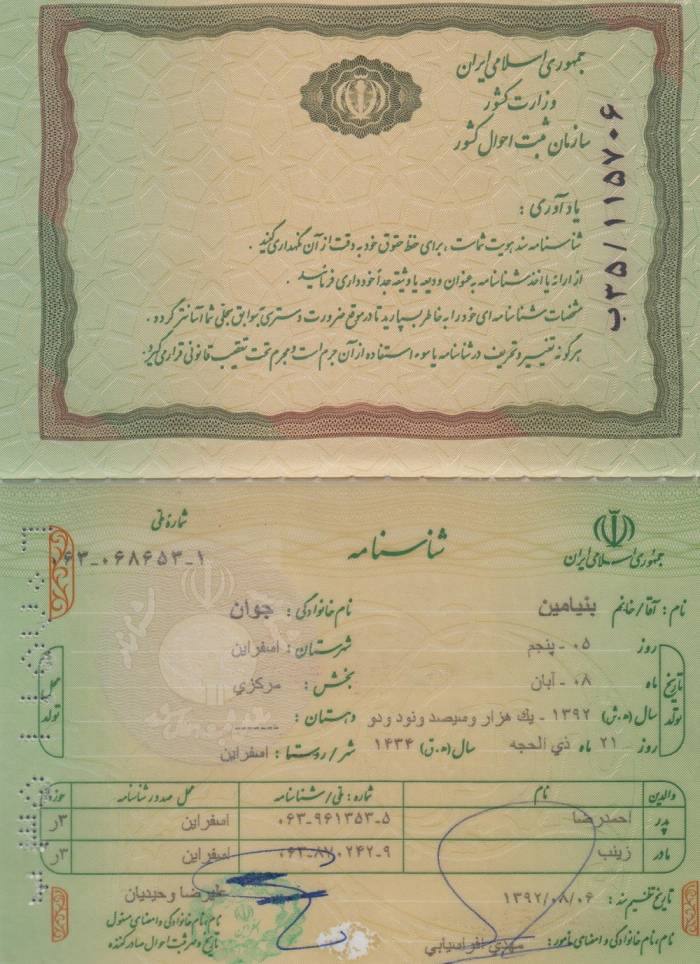 جمهوری اسلامی ایران
وزارت کشور
سازمان ثبت احوال کشور
ب۲۵/۱۱۵۷۰۶
یادآوری :
شناسنامه سند هویت شماست ، برای حفظ حقوق خود به دقت از آن نگهداری کنید .
از ارائه یا اخذ شناسنامه به عنوان ودیعه یا وثیقه جداً خودداری فرمائید .
مشخصات شناسنامه ای خود را به خاطر بسپارید تا در موقع ضرورت دسترسی به سوابق سجلی شما آسانتر گردد .
هرگونه تغییر و تحریف در شناسنامه یا سوء استفاده از آن جرم است و مجرم تحت تعقیب قانونی قرار می گیرد .
جمهوری اسلامی ایران
شناسنامه
شماره ملی
۰۶۳-۰۶۸۶۵۳-۱
نام : آقا/خانم بنیامین نام خانوادگی : جوان
تاریخ تولد
روز ۰۵ - پنجم
ماه ۰۸ - آبان
سال (ه.ش) ۱۳۹۲ - يك هزار وسيصد ونود ودو
روز ۲۱ ماه ذي الحجه سال (ه.ق) ۱۴۳۴
محل تولد
شهرستان : اسفراین
بخش : مرکزي
دهستان : -------
شهر/روستا : اسفراین
والدین نام شماره : ملی/شناسنامه محل صدور شناسنامه حوزه
پدر احمدرضا ۰۶۳-۹۶۱۳۵۳-۵ اسفراین ۳ر
مادر زینب ۰۶۳-۸۷۰۲۴۲-۹ اسفراین ۳ر
تاریخ تنظیم سند : ۱۳۹۲/۰۸/۰۶
نام، نام خانوادگی و امضای مأمور : مهدي افراسيابي
علیرضا وحیدیان
نام، نام خانوادگی و امضای مسئول
تاریخ و مهر ثبت احوال صادر کننده